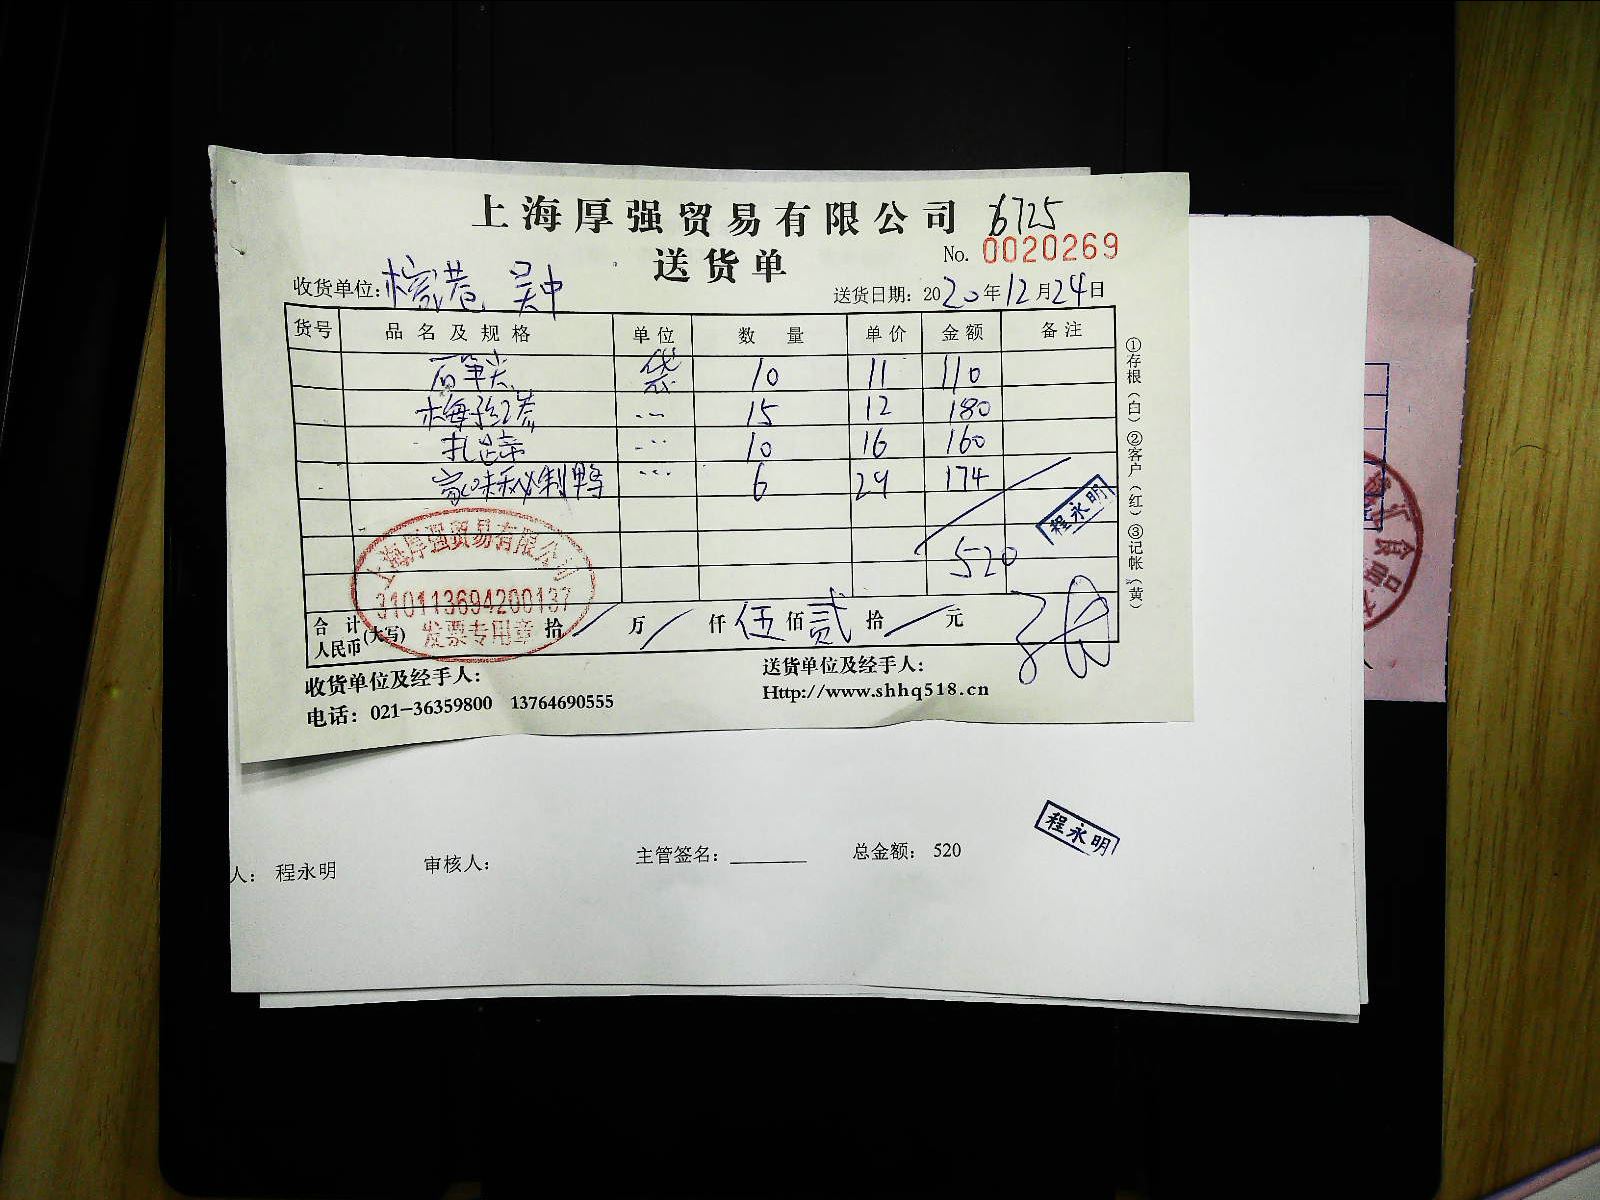 上海厚强贸易有限公司 6725
送货单
No. 0020269
收货单位: 吴中
送货日期: 2020年12月24日
货号 品名及规格 单位 数量 单价 金额 备注
石笋尖 袋 10 11 110
15 12 180
扎蹄 10 16 160
家味秘制鸭 6 29 174
520
程永明
合计人民币(大写) 拾 万 仟 伍 佰 贰 拾 元
上海厚强贸易有限公司
310113694200137
发票专用章
收货单位及经手人:
送货单位及经手人:
电话: 021-36359800 13764690555
Http://www.shhq518.cn
①存根(白)②客户(红)③记帐(黄)
人: 程永明 审核人: 主管签名: 总金额: 520
程永明